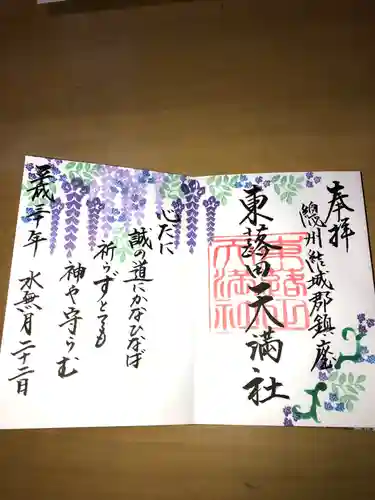 奉拝
總州結城郡鎮座
東蕗田天満社
心だに
誠の道にかなひなば
祈らずとても
神や守らむ
平成三十年
水無月二十二日